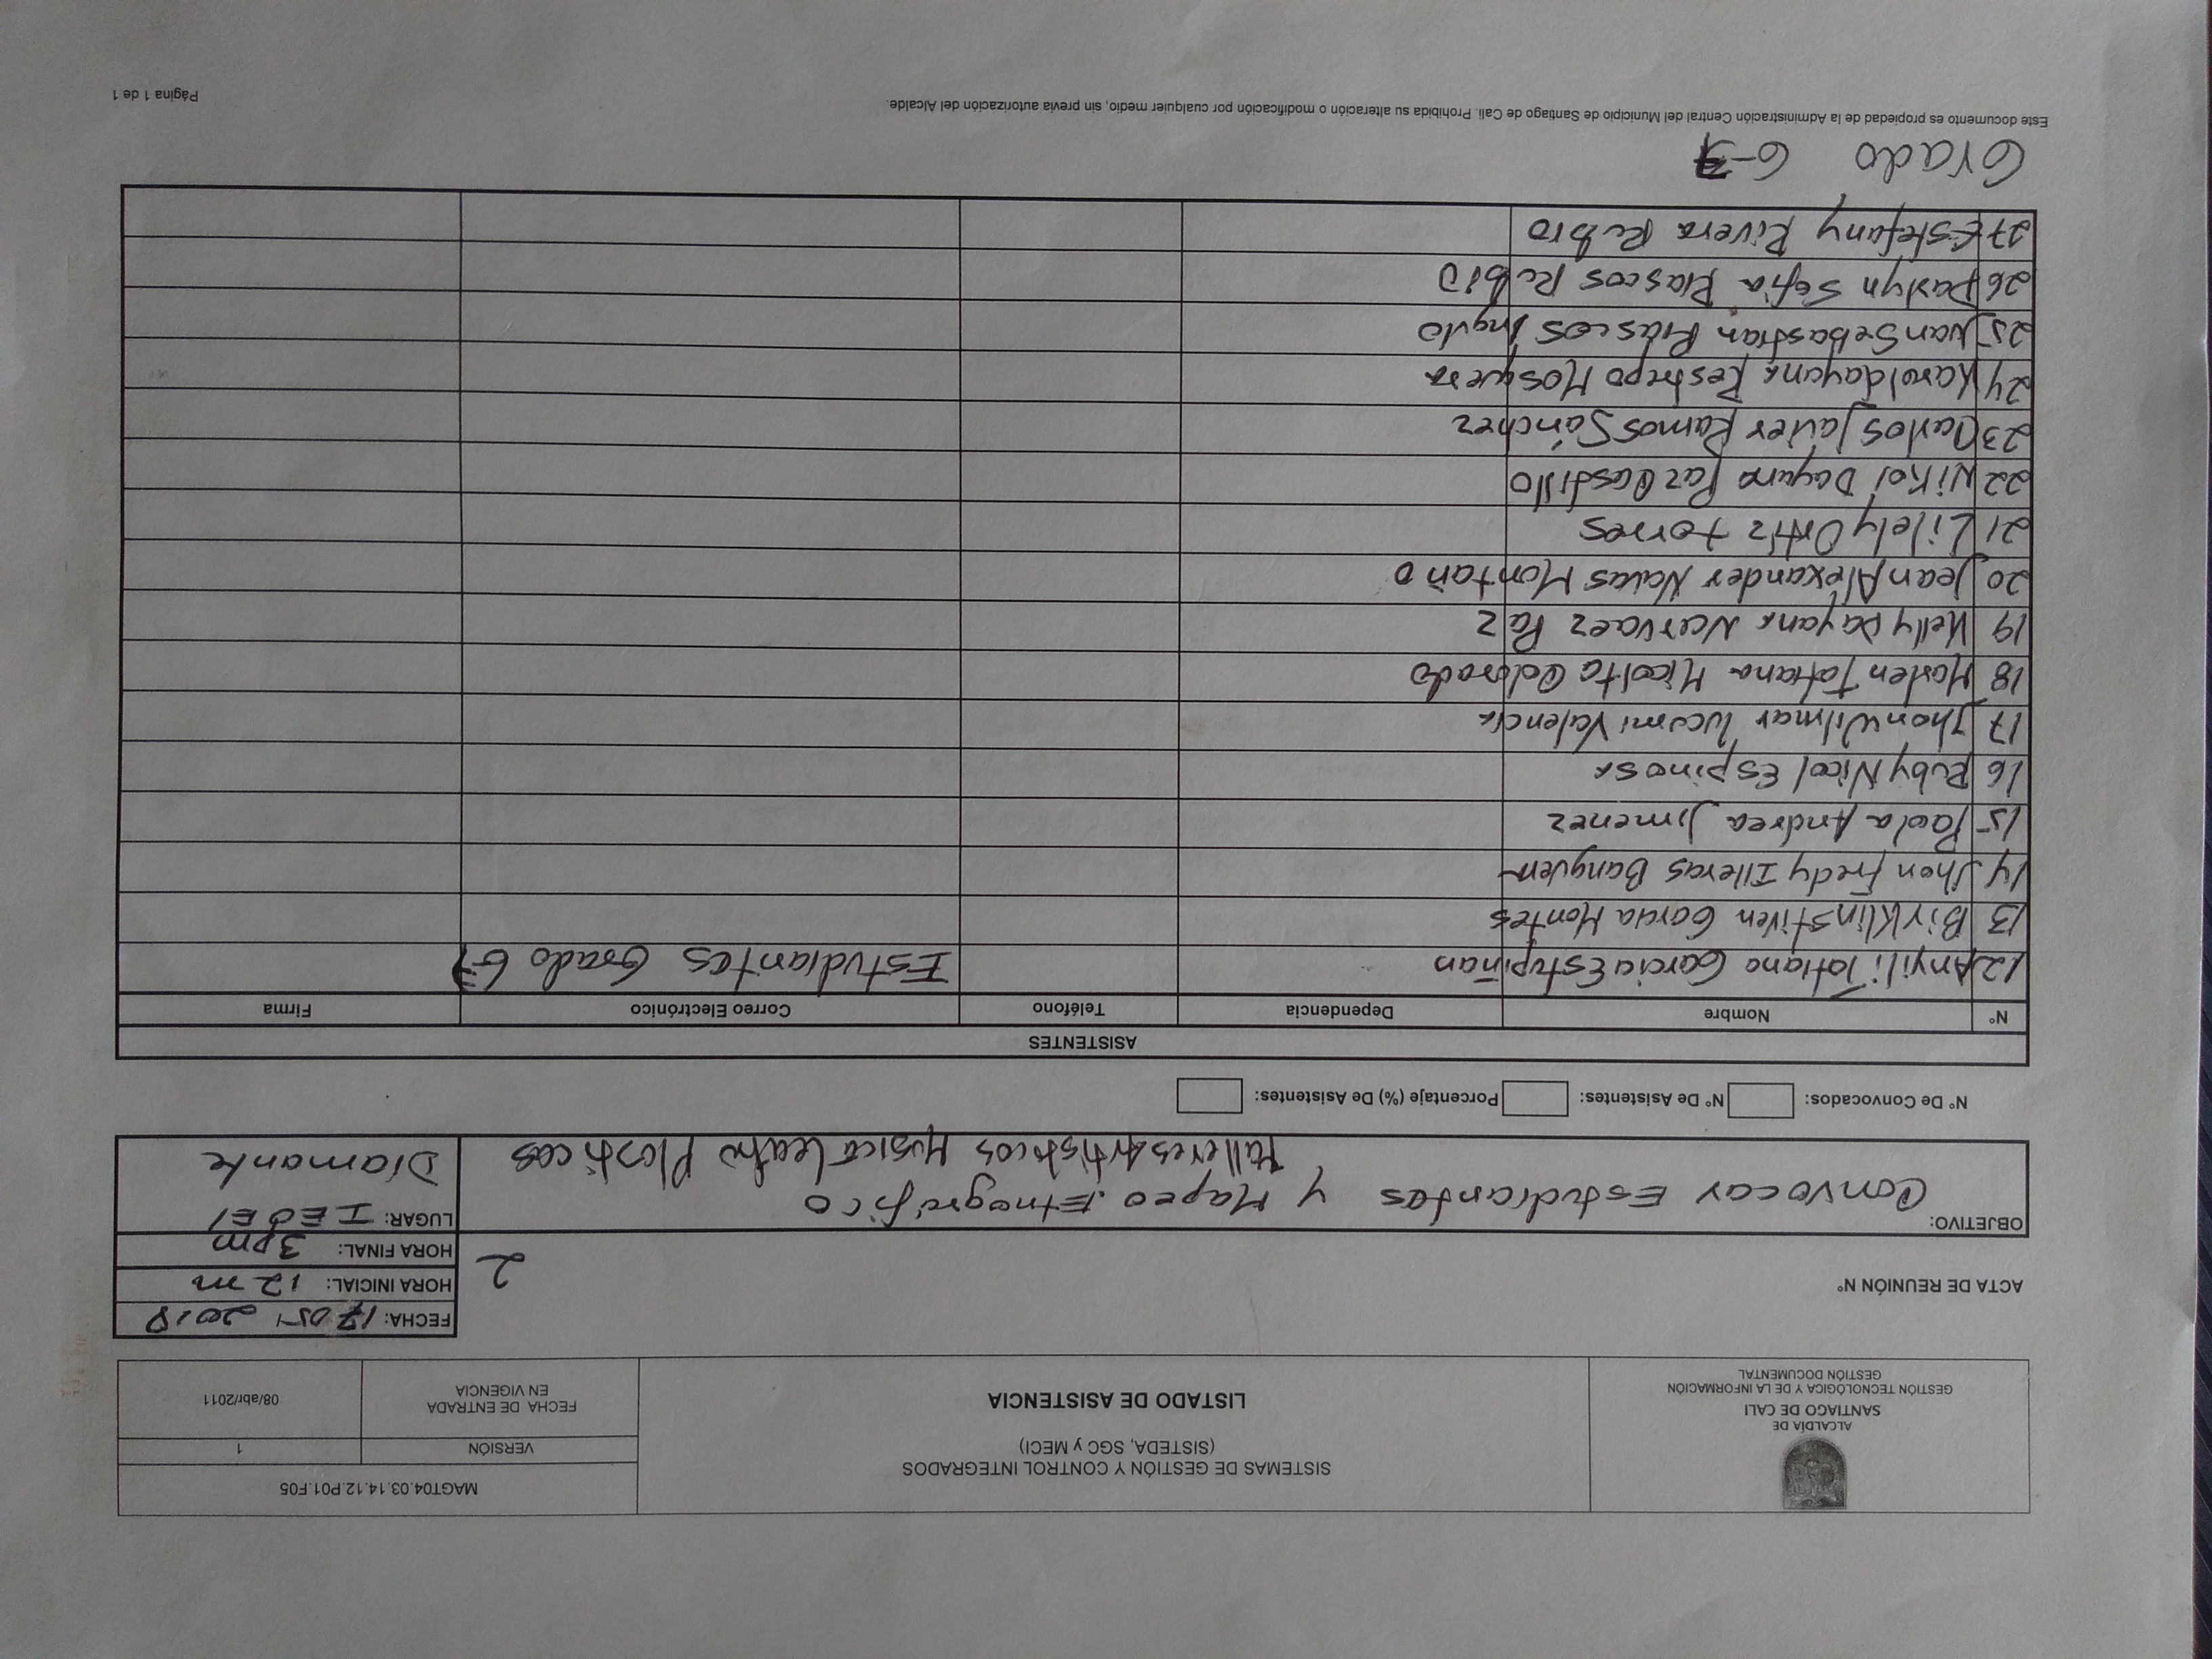 ALCALDÍA DE
SANTIAGO DE CALI
GESTIÓN TECNOLÓGICA Y DE LA INFORMACIÓN
GESTIÓN DOCUMENTAL
SISTEMAS DE GESTIÓN Y CONTROL INTEGRADOS
(SISTEDA, SGC y MECI)
LISTADO DE ASISTENCIA
MAGT04.03.14.12.P01.F05
VERSIÓN 1
FECHA DE ENTRADA
EN VIGENCIA
08/abr/2011
ACTA DE REUNIÓN N°
2
FECHA: 17 05 2018
HORA INICIAL: 12 m
HORA FINAL: 3pm
LUGAR: IEO El
Diamante
OBJETIVO:
Convocar Estudiantes y Mapeo Etnográfico
Talleres Artisticos Musica teatro Plasticas
N° De Convocados: N° De Asistentes: Porcentaje (%) De Asistentes:
ASISTENTES
N° Nombre Dependencia Teléfono Correo Electrónico Firma
12 Anyili Tatiana Garcia Estupiñan Estudiantes Grado
13 Birklinstiven Garcia Montes
14 Jhon Fredy Illeras Banguera
15 Paola Andrea Jimenez
16 Ruby Nicol Espinosa
17 Jhon Wilmar lucumi Valencia
18 Marlen Tatiana Micolta Colorado
19 Kelly Dayana Narvaez Paz
20 Jean Alexander Navas Montaño
21 Lilely Ortiz torres
22 Nikol Dayana Paz Castillo
23 Carlos Javier Ramos Sánchez
24 Karol dayana Restrepo Mosquera
25 Juan Sebastian Riascos Angulo
26 Darlyn Sofia Riascos Rubio
27 Estefany Rivera Rubio
Grado
Este documento es propiedad de la Administración Central del Municipio de Santiago de Cali. Prohibida su alteración o modificación por cualquier medio, sin previa autorización del Alcalde.
Página 1 de 1